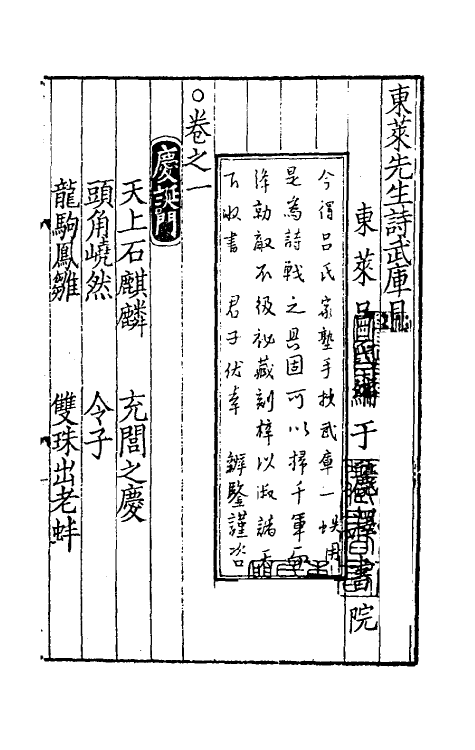 東萊先生詩武庫目
東萊呂氏編于麗澤書院
今得呂氏家塾手抄武庫一帙用
是為詩戰之具固可以掃千軍而
降勍敵不欲祕藏刻梓以淑諸天
下收書君子伏幸詳鑒謹咨
○卷之一
慶誕門
天上石麒麟 充閭之慶
頭角嶢然 令子
龍駒鳳雛 雙珠出老蚌